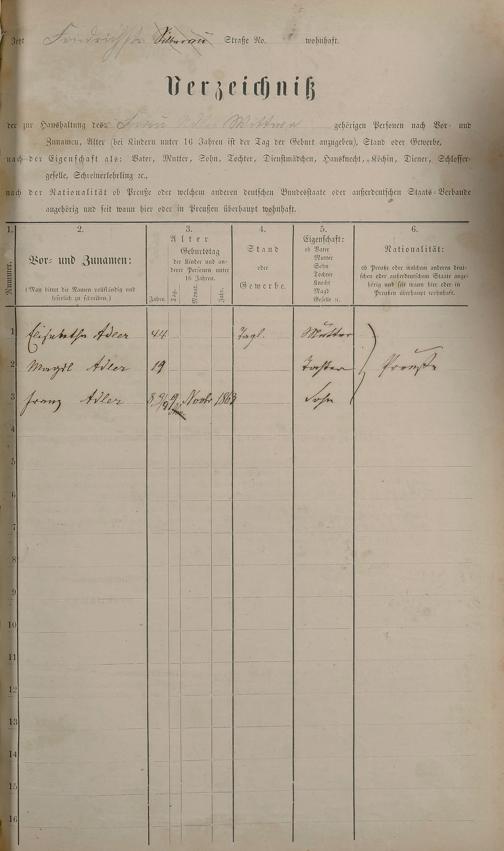 Jetzt Friedrichstr. Straße No. wohnhaft.
Verzeichniß
der zur Haushaltung des Frau Adler Wittwe gehörigen Personen nach Vor- und
Zunamen, Alter (bei Kindern unter 16 Jahren ist der Tag der Geburt anzugeben), Stand oder Gewerbe,
nach der Eigenschaft als: Vater, Mutter, Sohn, Tochter, Dienstmädchen, Hausknecht, Köchin, Diener, Schlosser-
geselle, Schreinerlehrling ꝛc.,
nach der Nationalität ob Preuße oder welchem anderen deutschen Bundesstaate oder außerdeutschen Staats-Verbande
angehörig und seit wann hier oder in Preußen überhaupt wohnhaft.
1. 2. 3. 4. 5. 6.
Nummer.
Vor- und Zunamen:
(Man bittet die Namen vollständig und
leserlich zu schreiben.)
Alter
Geburtstag
der Kinder und an-
derer Personen unter
16 Jahren.
Jahre. Tag. Monat. Jahr.
Stand
oder
Gewerbe.
Eigenschaft:
ob Vater
Mutter
Sohn
Tochter
Knecht
Magd
Geselle ꝛc.
Nationalität:
ob Preuße oder welchem anderen deut-
schen oder außerdeutschen Staate ange-
hörig und seit wann hier oder in
Preußen überhaupt wohnhaft.
1 Elisabetha Adler 44 Tagl. Mutter
2 Magdl Adler 19 Tochter Preuße
3 Franz Adler 9 Novbr 1863 Sohn
4
5
6
7
8
9
10
11
12
13
14
15
16